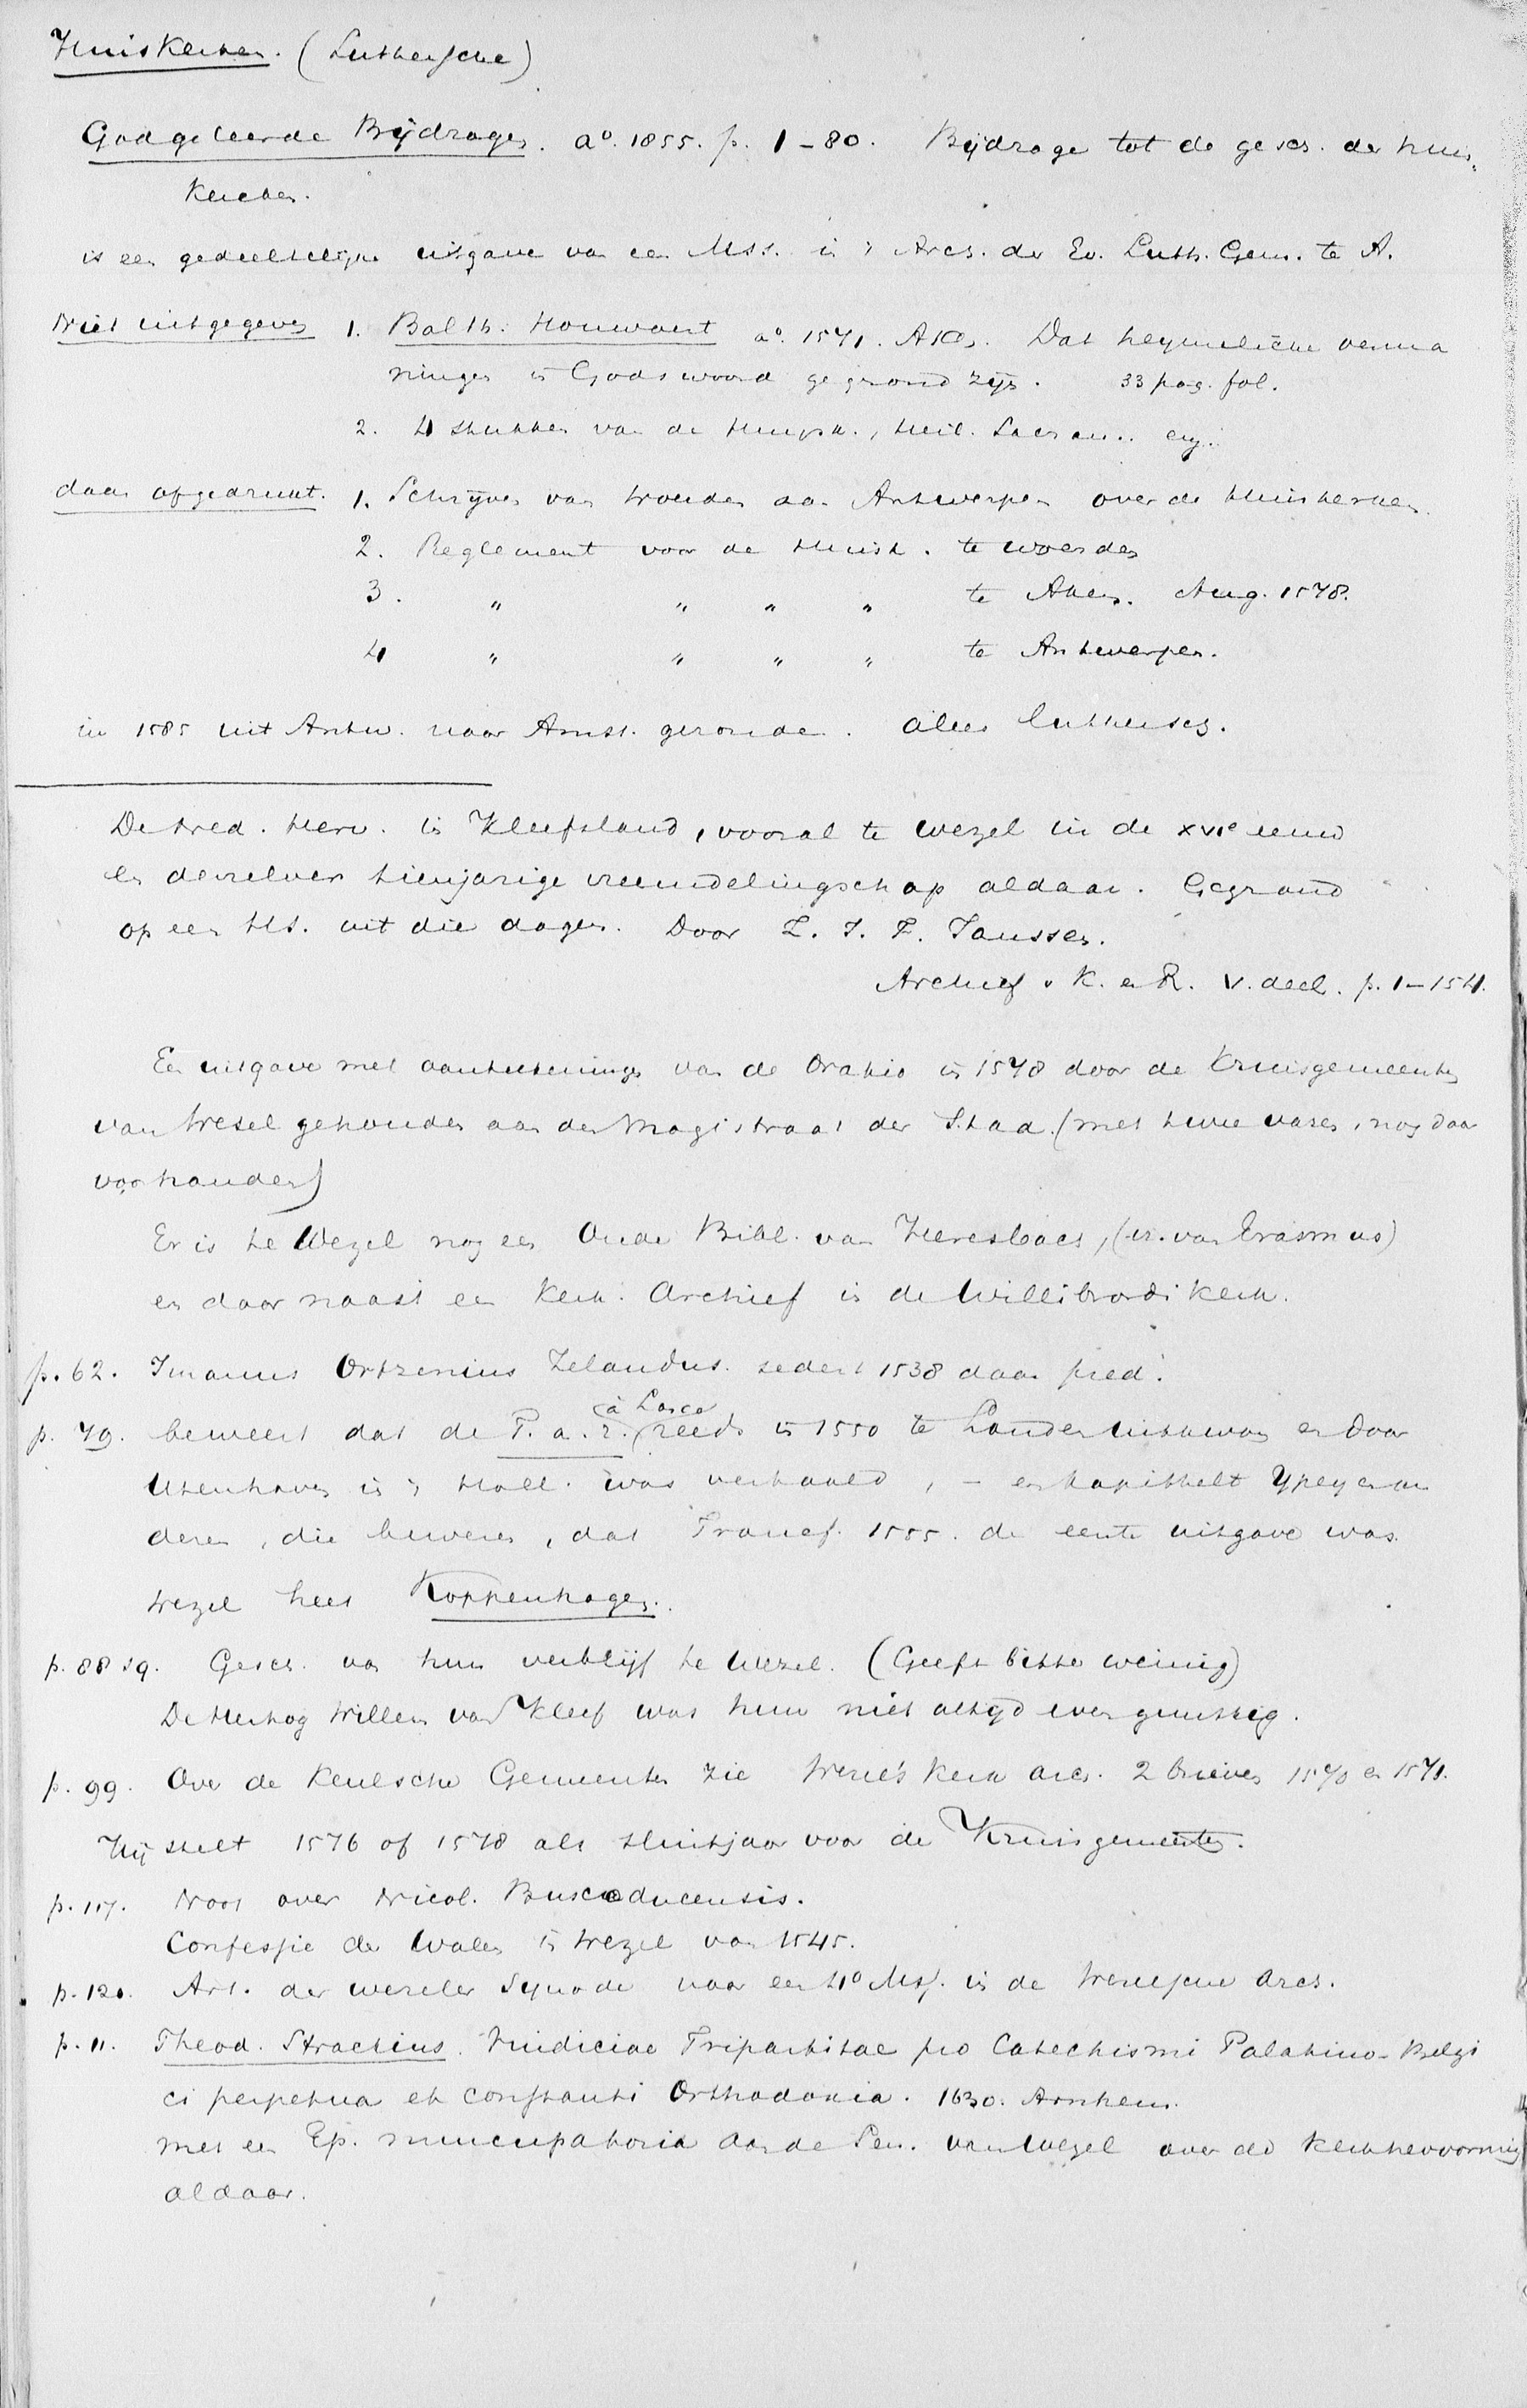 Huiskerken. (Luthersche)
Godgeleerde Bijdragen. a° 1855. p. 1-80. Bijdrage tot de gesch. der huis-
kerken.
is een gedeeltelijke uitgave van een Mss. in 't Arch. der Ev. Luth. Gem. te A.
Niet uitgegeven 1. Balth. Houwaert a° 1571. Aken. Dat heymeliche verma
ningen in Godswoord gegrond zijn. 33 pag. fol.
2. 4 stukken van de Huysk., Heil. Sacram.. enz.
daar afgedrukt. 1. Schrijven van Woerden aan Antwerpen over de Huiskerken.
2. Reglement voor de Huisk. te Woerden
3. " " " " te Aken. Aug. 1578.
4 " " " " te Antwerpen.
in 1585 uit Antw. naar Amst. gezonden. alles luthersch.
De Ned. Herv. in Kleefsland, vooral te Wezel in de XVIe eeuw
en derzelver tienjarige vreemdelingschap aldaar. Gegrond
op een Hs. uit die dagen. Door L. J. F. Janssen.
Archief v. K. en R. V. deel. p. 1-154.
Een uitgave met aanteekeningen van de Oratio in 1578 door de Kruisgemeenten
van Wesel gehouden aan den Magistraat der Stad. (met twee vazen, nog daar
voorhanden)
Er is te Wezel nog een Oude Bibl. van Heresbach, (vr. van Erasmus)
en daar naast een Kerk. Archief in de Willibrordi kerk.
p. 62. Imanus Ortzenius Zelandus. sedert 1538 daar pred.
p. 79. beweert dat de F. a. r. (à Lasco) reeds in 1550 te Londen uitkwam en door
Utenhoven in 't Holl. was vertaald, - en kapittelt Ypey en an
deren, die beweren, dat Francf. 1555. de eerste uitgave was.
Wezel heet Koppenhagen.
p. 88 sq. Gesch. van hun verblijf te Wezel. (Geeft bitter weinig)
De Hertog Willem van Kleef was hun niet altijd even gunstig.
p. 99. Over de Keulsche Gemeenten zie Wezel's kerk arch. 2 brieven 1570 en 1571.
Hij stelt 1576 of 1578 als sluitjaar voor de Kruisgemeenten.
p. 117. Noot over Nicol. Buscoducensis.
Confessie der Walen in Wezel van 1545.
p. 120. Art. der Wezeler Synode naar een 4° Mss. in de Wezelsche arch.
p. 11. Theod. Strackius. Vindiciae Tripartitae pro Catechismi Palatino-Belgi
ci perpetua et constanti Orthodoxia. 1630. Arnhem.
met een Ep. nuncupatoria aan de Sen. van Wezel over de kerkhervorming
aldaar.